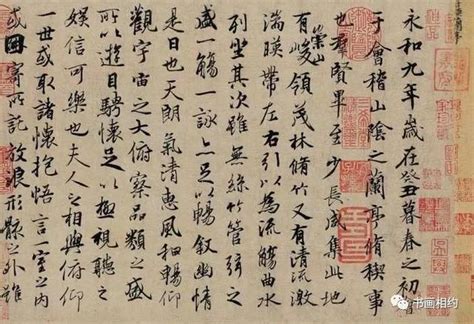 永和九年歲在癸丑暮春之初會
于會稽山陰之蘭亭脩稧事
也羣賢畢至少長咸集此地
有崇山峻領茂林脩竹又有清流激
湍暎帶左右引以為流觴曲水
列坐其次雖無絲竹管弦之
盛一觴一詠亦足以暢叙幽情
是日也天朗氣清惠風和暢仰
觀宇宙之大俯察品類之盛
所以遊目騁懷足以極視聽之
娛信可樂也夫人之相與俯仰
一世或取諸懷抱悟言一室之內
或因寄所託放浪形骸之外雖
书画相约